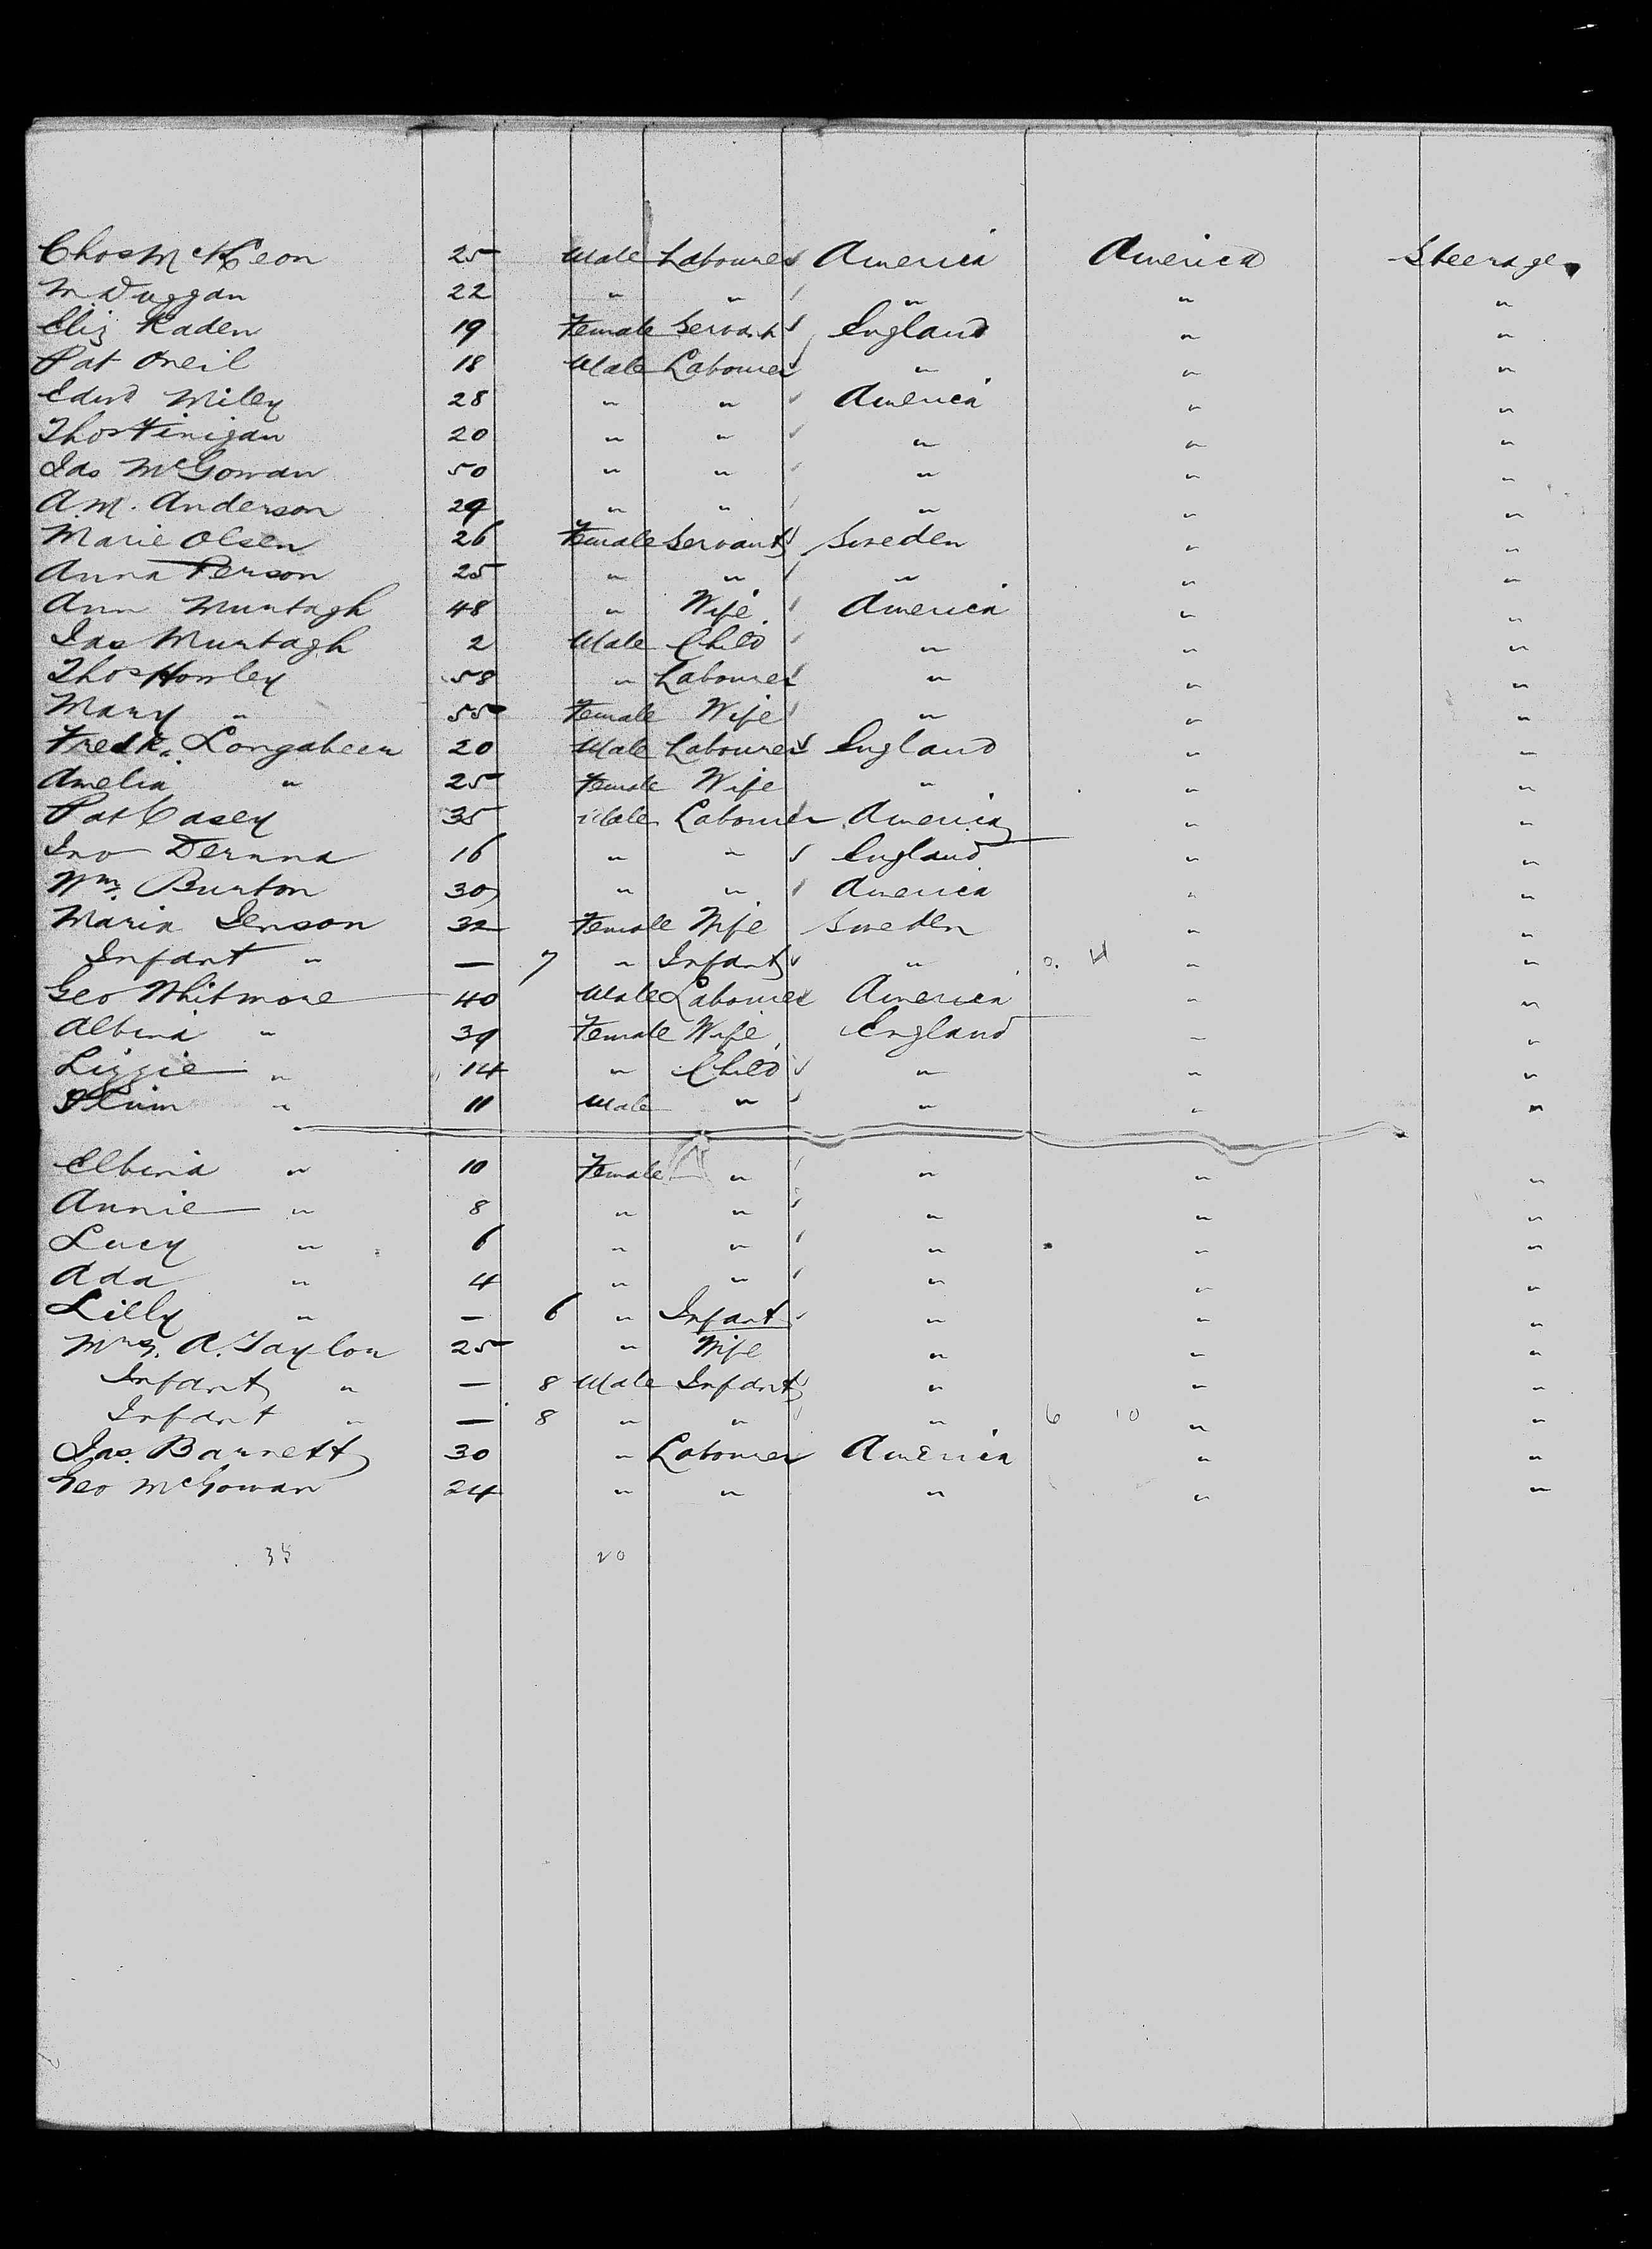 Chas McKeon 25 Male Labourer America America Steerage
M Duggan 22 " " " " "
Eliz Kaden 19 Female Servant England " "
Pat Oneil 18 Male Labourer " " "
Edwd Miley 28 " " America " "
Thos Finigan 20 " " " " "
Jas McGowan 50 " " " " "
A.M. Anderson 29 " " " " "
Marie Olsen 26 Female Servant Sweden " "
Anna Person 25 " " " " "
Ann Murtagh 48 " Wife America " "
Jas Murtagh 2 Male Child " " "
Thos Howley 58 " Labourer " " "
Mary " 55 Female Wife " " "
Fredk. Longabeer 20 Male Labourer England " "
Amelia " 25 Female Wife " " "
Pat Casey 35 Male Labourer America " "
Jno 16 " " England " "
Wm. Burton 30 " " America " "
Maria Jenson 32 Female Wife Sweden " "
Infant " — 7 " Infant " "  "
Geo Whitmore 40 Male Labourer America " "
Albina " 39 Female Wife England " "
Lizzie " 14 " Child " " "
" 11 Male " " " "
Elbina " 10 Female " " " "
Annie " 8 " " " " "
Lucy " 6 " " " " "
Ada " 4 " " " " "
Lilly " — 6 " Infant " " "
Mrs. A. Taylor 25 " Wife " " "
Infant " — 8 Male Infant " " "
Infant " — 8 " " " 6 10 " "
Jas. Barnett 30 " Labourer America " "
Geo McGowan 24 " " " " "
35 20